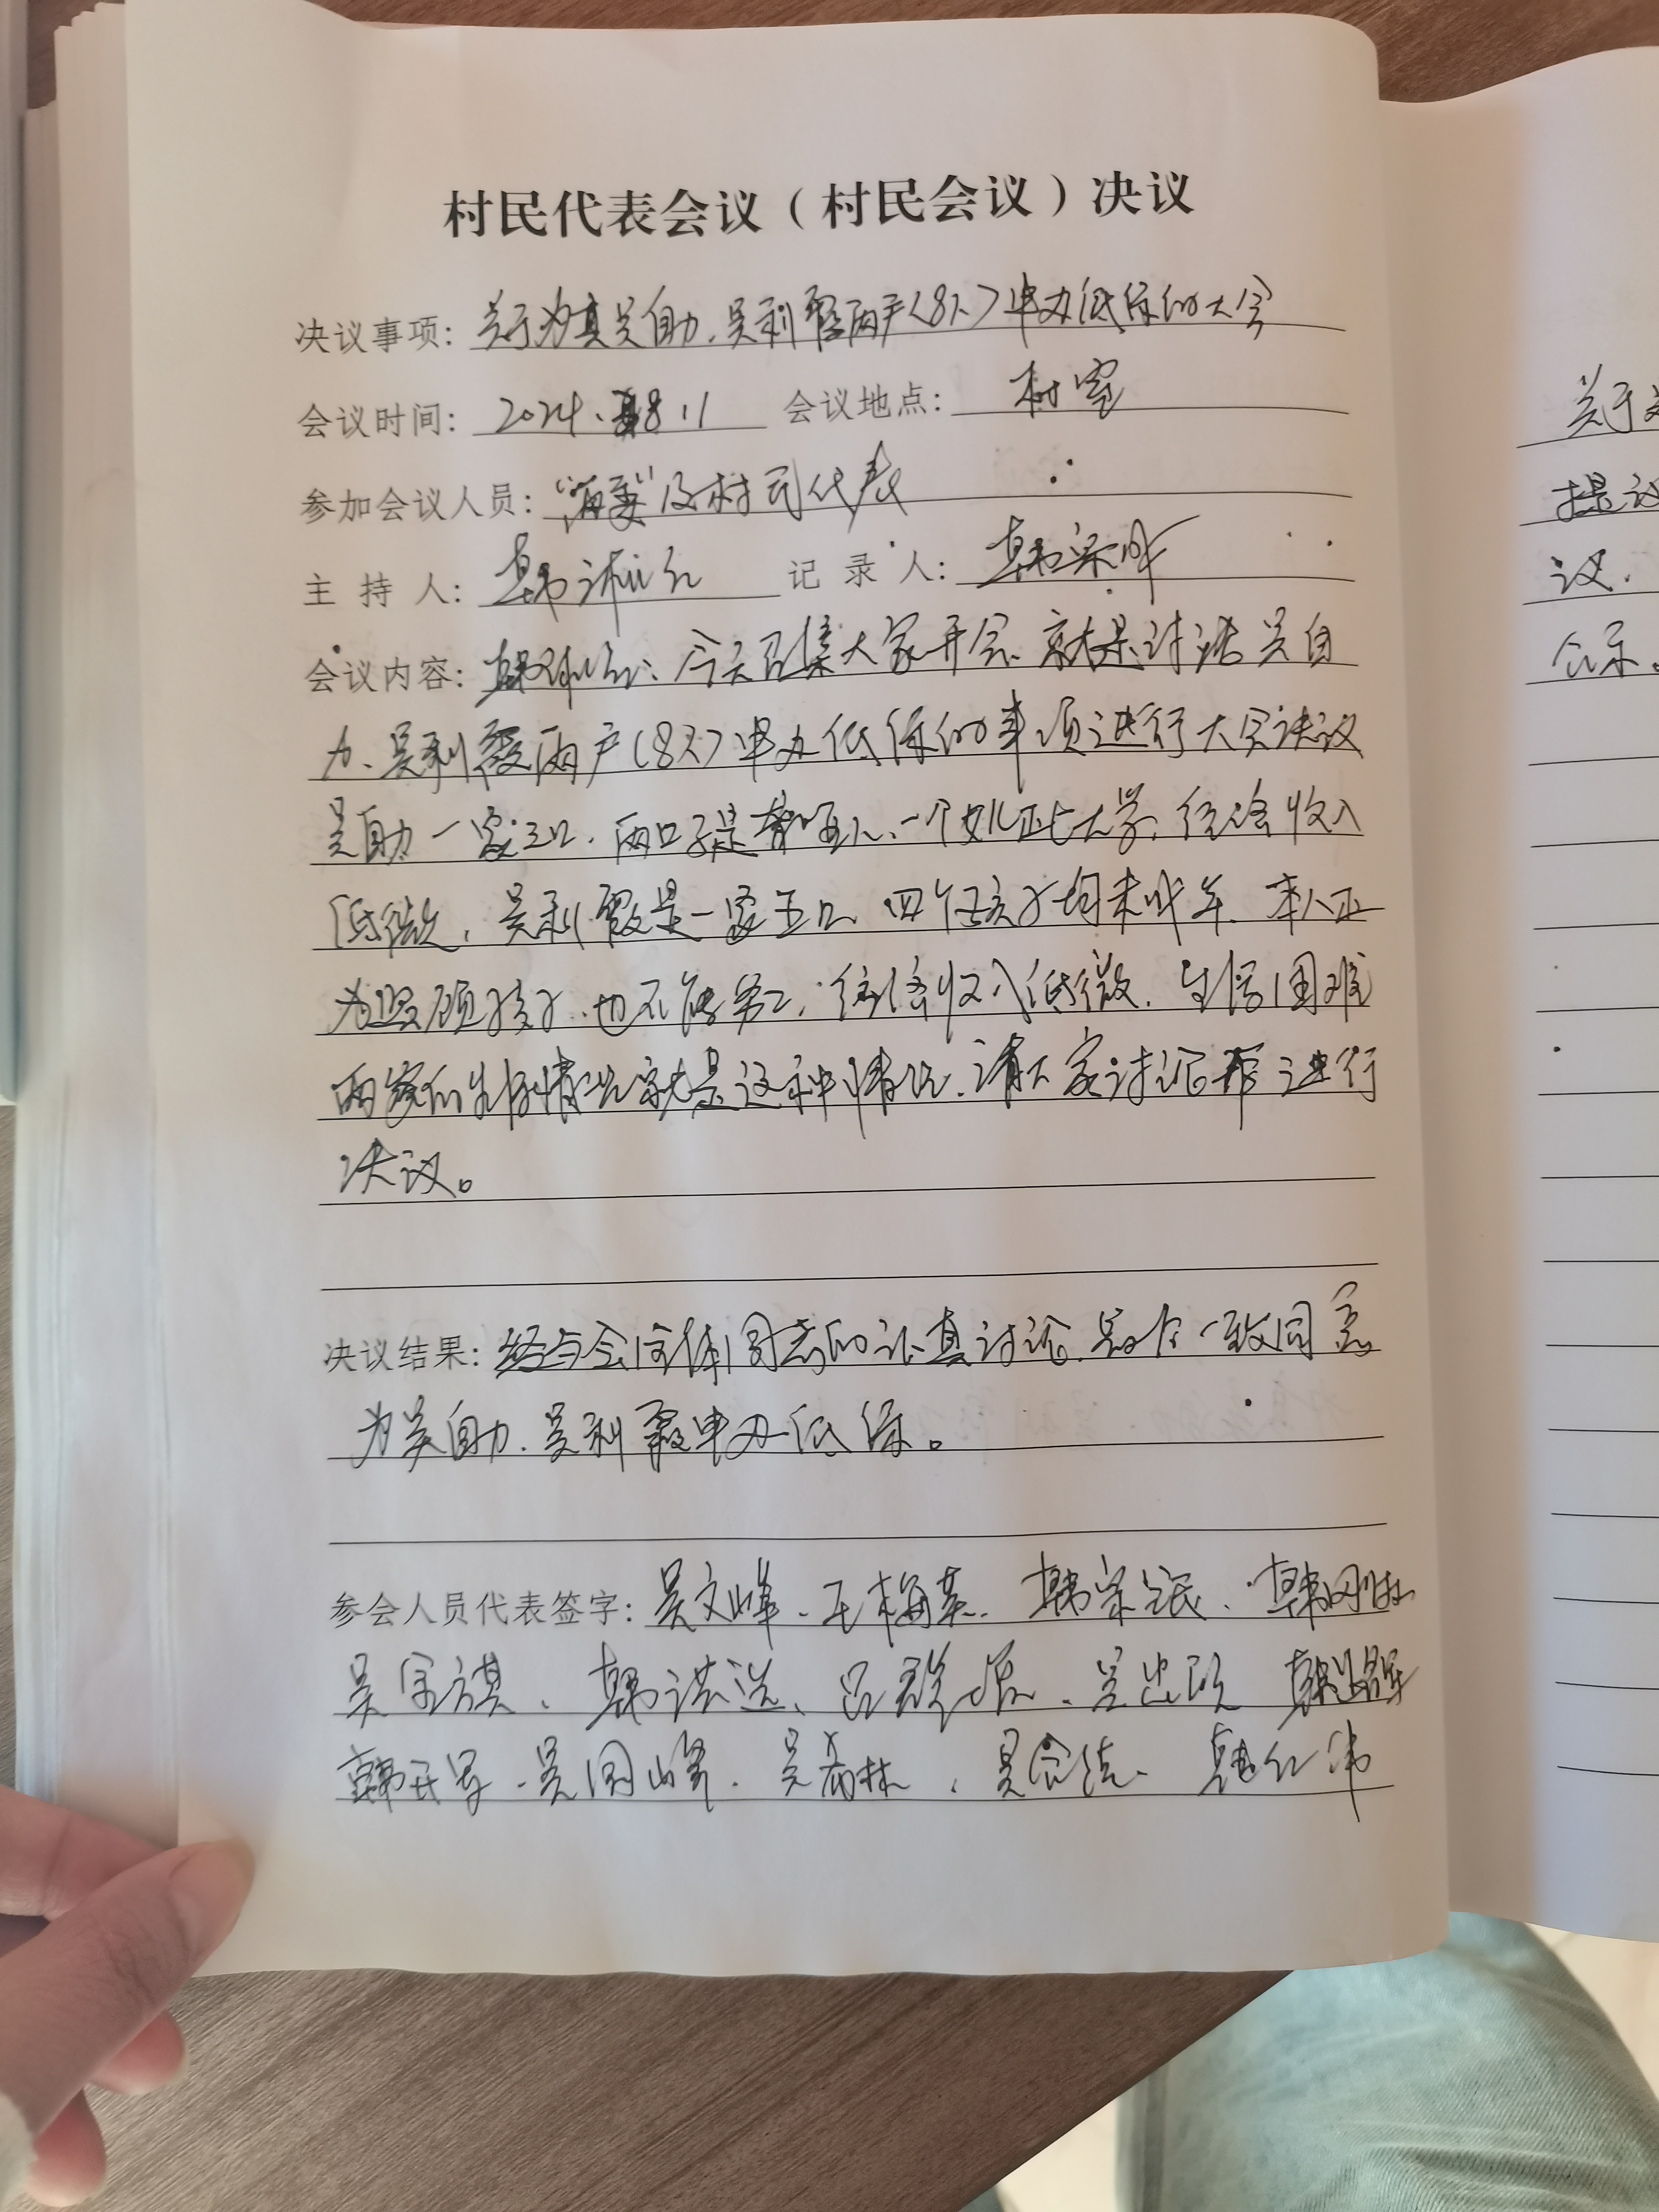 村民代表会议（村民会议）决议
决议事项：关于为吴自助、吴利霞两户（8人）申办低保的大会
会议时间：2024.8.11 会议地点：村室
参加会议人员：“两委”及村民代表
主 持 人：韩 记 录 人：韩宗成
会议内容：韩：今天召集大家开会、就是讨论吴自
力、吴利霞两户（8人）申办低保的事项进行大会决议
吴自助一家三口、两口子是、一个女儿正上大学、经济收入
低微，吴利霞是一家五口、四个孩子均未成年、本人正
为照顾孩子、也不能务工，经济收入低微、生活困难
两家的生活情况就是这种情况、请大家讨论并进行
决议。
决议结果：经与会全体同志的认真讨论、最后一致同意
为吴自助、吴利霞申办低保。
参会人员代表签字：吴文峰、王梅英、韩宗民、韩刚
吴、韩、吴 韩
韩、吴国峰、吴林、吴、韩红伟
关于
提议
议、
公示。